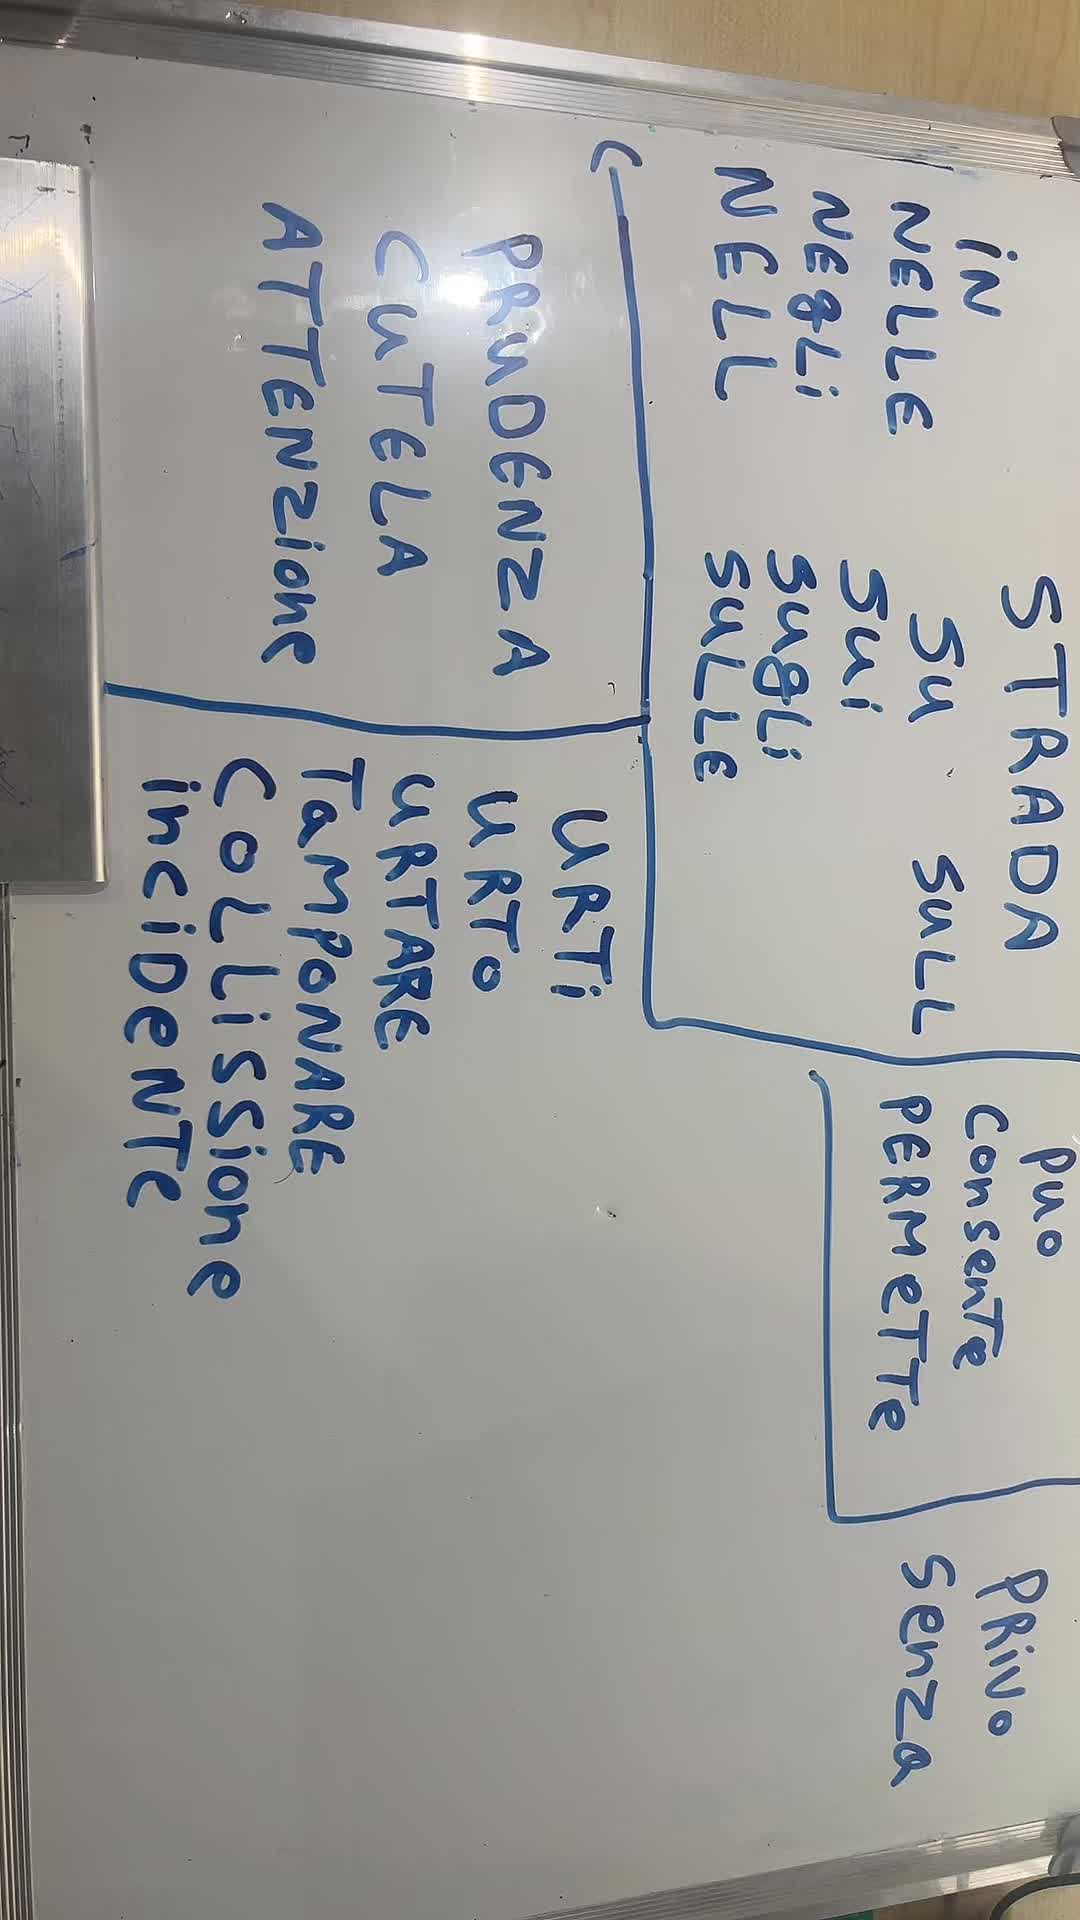 STRADA
iN SU SULL
NELLE SUi
NEgLi SUgLi
NELL SULLE
PUO
ConsenTe
PERMeTTe
PRiVo
SenZa
PRuDENZA
CuTELA
ATTENZione
URTi
URTo
URTARE
TamPONARE
CoLLiSSione
inciDeNTe